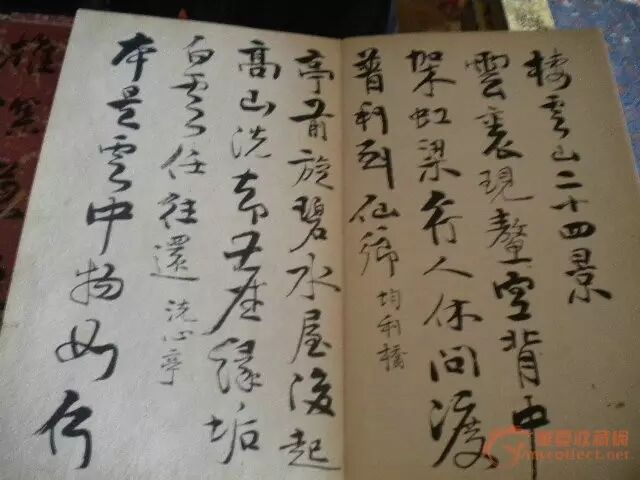 棲雲山二十四景
雲裏現鼇空背中
架虹梁行人休問渡
普利到仙鄉 均利橋
亭前旋碧水屋後起
高山洗却塵緣垢
白雲任往還 洗心亭
本是雲中物如何